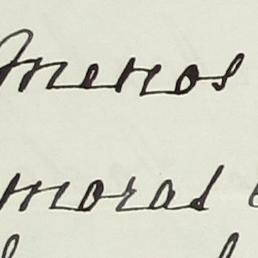 menos
moras